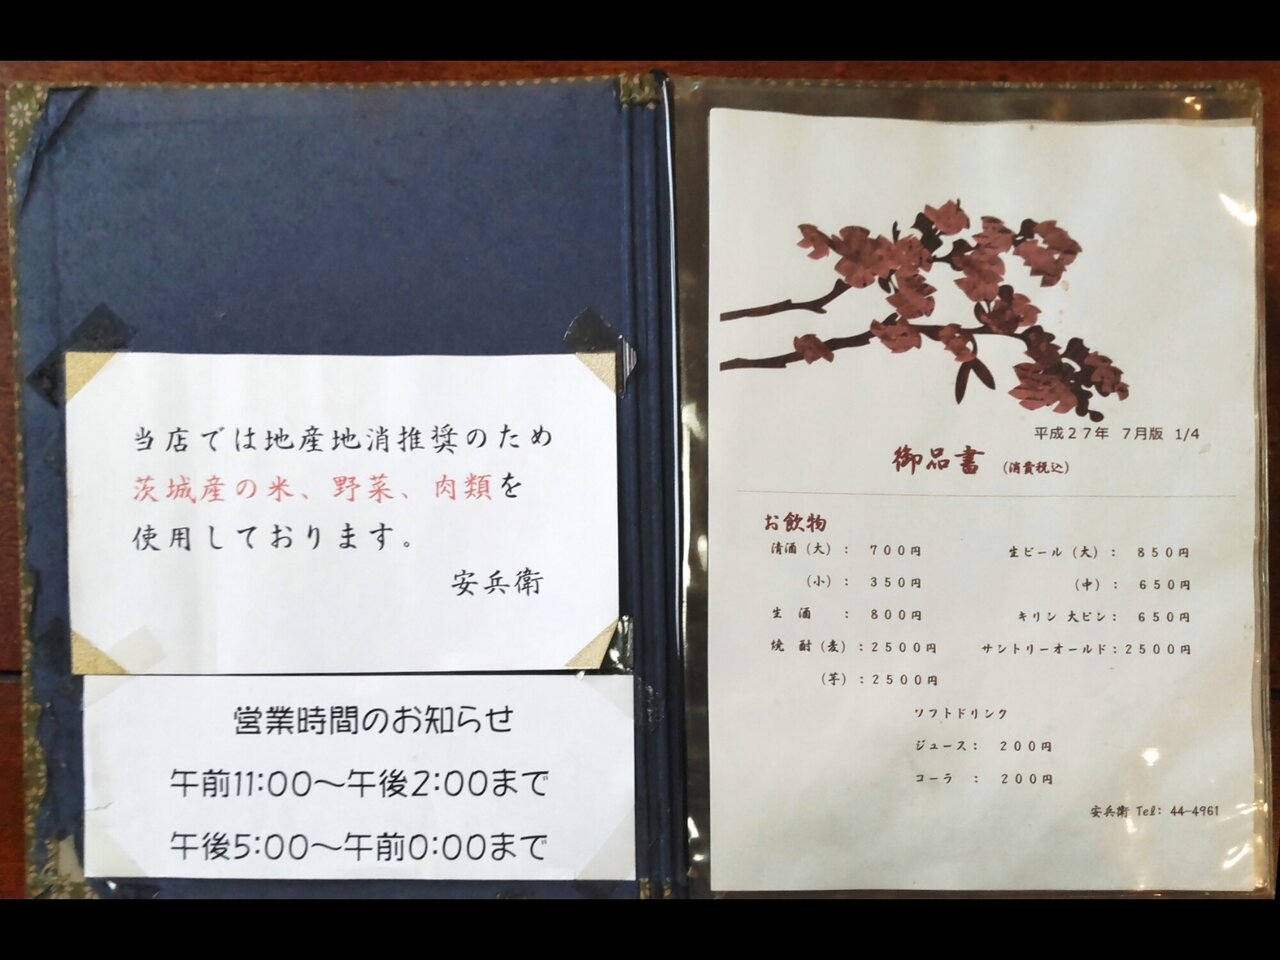 当店では地産地消推奨のため
茨城産の米、野菜、肉類を
使用しております。
安兵衛
営業時間のお知らせ
午前11:00～午後2:00まで
午後5:00～午前0:00まで
平成27年 7月版 1/4
御品書 (消費税込)
お飲物
清酒(大): 700円
(小): 350円
生 酒 : 800円
焼 酎(麦):2500円
(芋):2500円
生ビール(大): 850円
(中): 650円
キリン 大ビン: 650円
サントリーオールド:2500円
ソフトドリンク
ジュース: 200円
コーラ : 200円
安兵衛 Tel: 44-4961